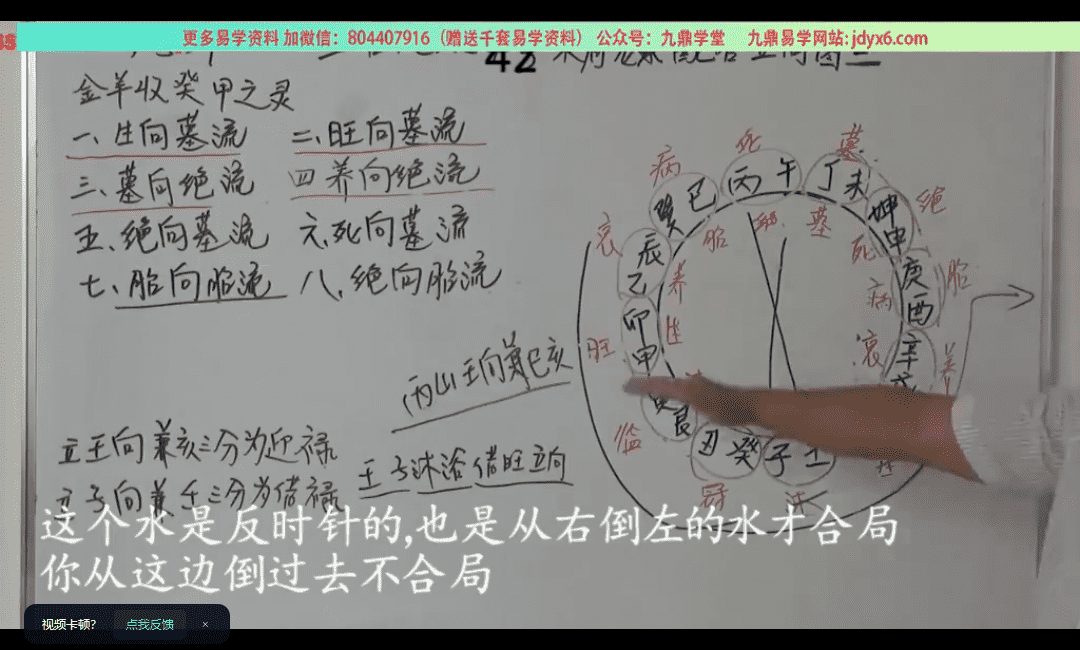 更多易学资料 加微信：804407916（赠送千套易学资料） 公众号：九鼎学堂 九鼎易学网站:jdyx6.com
42
金羊收癸甲之灵
一、生向墓流 二、旺向墓流
三、墓向绝流 四养向绝流
五、绝向墓流 六、死向墓流
七、胎向胎流 八、绝向胎流
丙山壬向兼巳亥
立壬向兼亥三分为迎禄
立子向兼壬三分为借禄
壬子沐浴借旺立向
死 墓
病 丙午 丁未 绝
癸巳 坤申
衰 胎 墓 死
辰乙 养 病 庚酉 胎
旺 卯甲 生 衰 辛 养
艮
临 丑癸 子壬
冠 沐
这个水是反时针的,也是从右倒左的水才合局
你从这边倒过去不合局
视频卡顿? 点我反馈 ×